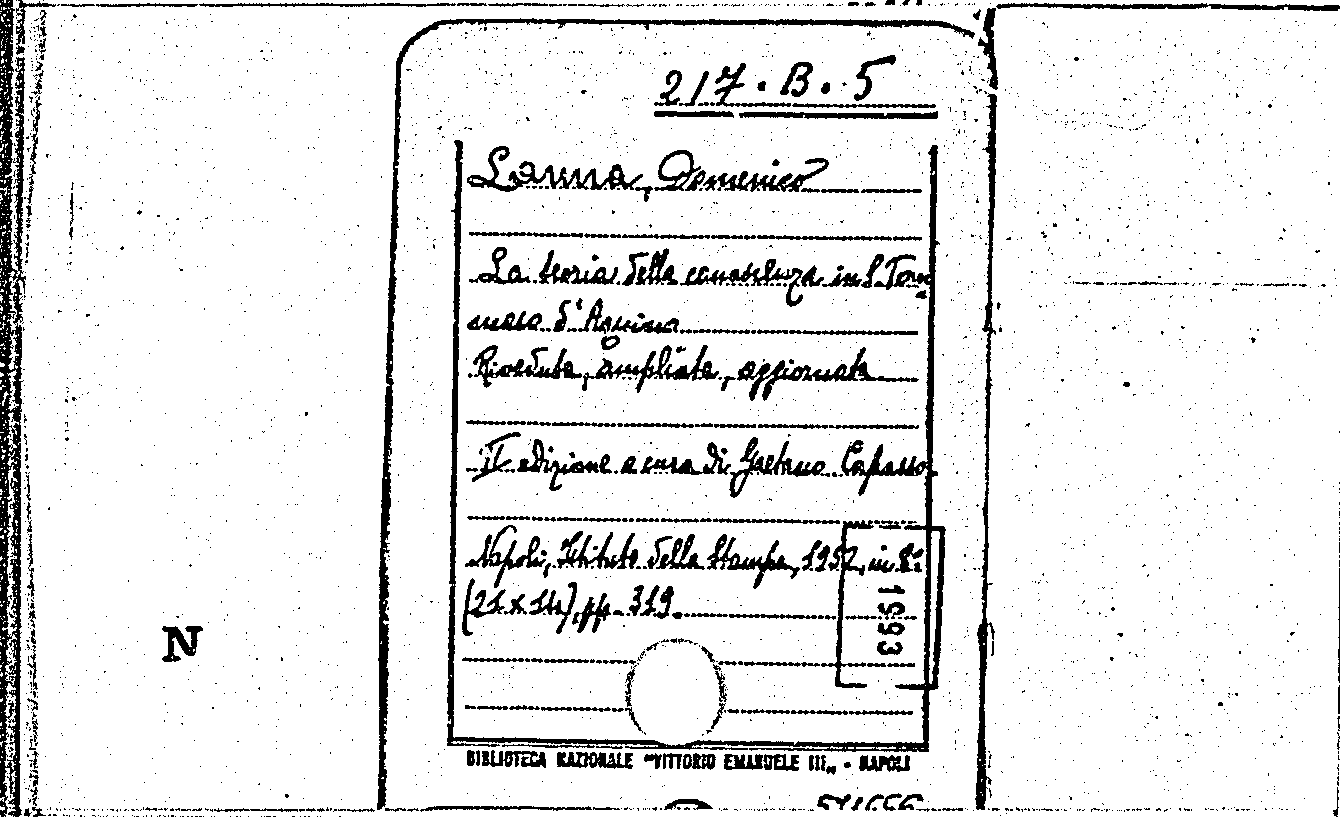 217.B.5
Lanna, Domenico
La teoria della conoscenza in S. Tom-
maso d'Aquino
Riveduta, ampliata, aggiornata
II edizione a cura di Gaetano Capasso
Napoli, Istituto della Stampa, 1952, in 8°
(21 x 14), pp. 319.
1993
N
BIBLIOTECA NAZIONALE "VITTORIO EMANUELE III„ - NAPOLI